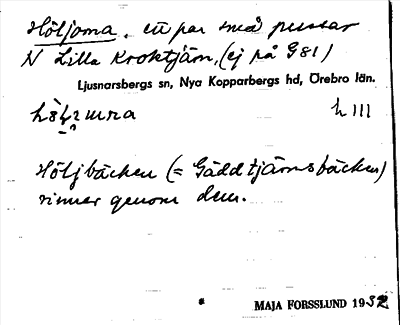 Höljorna, ett par små pussar
N Lilla Kroktjärn, (ej på G81)
Ljusnarsbergs sn, Nya Kopparbergs hd, Örebro län.
h III
Höljbäcken (= Gäddtjärnsbäcken)
rinner genom dem.
MAJA FORSSLUND 1932